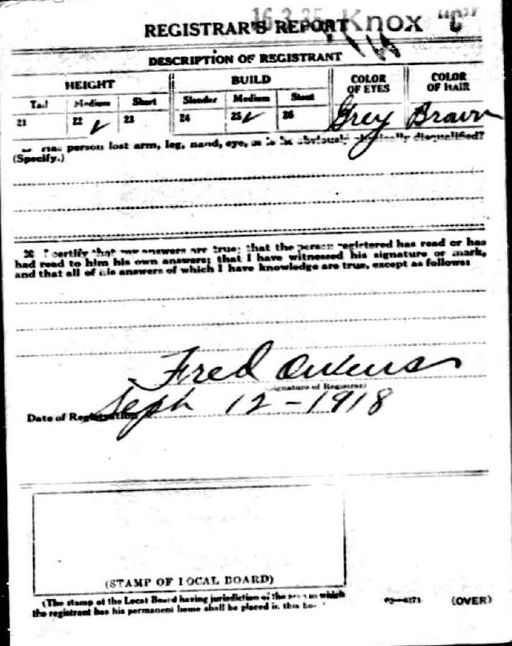 16 3 35 Knox "C"
REGISTRAR'S REPORT
DESCRIPTION OF REGISTRANT
HEIGHT BUILD COLOR OF EYES COLOR OF HAIR
Tall Medium Short Slender Medium Stout
21 22 ✓ 23 24 25 ✓ 26 Grey Brown
person lost arm, leg, hand, eye, or is he obviously physically disqualified?
(Specify.)
30 I certify that my answers are true; that the person registered has read or has
had read to him his own answers; that I have witnessed his signature or mark,
and that all of his answers of which I have knowledge are true, except as follows:
Fred
(Signature of Registrar)
Date of Registration Sept 12-1918
(STAMP OF LOCAL BOARD)
(The stamp of the Local Board having jurisdiction of the area in which
the registrant has his permanent home shall be placed in this box.)
(OVER)